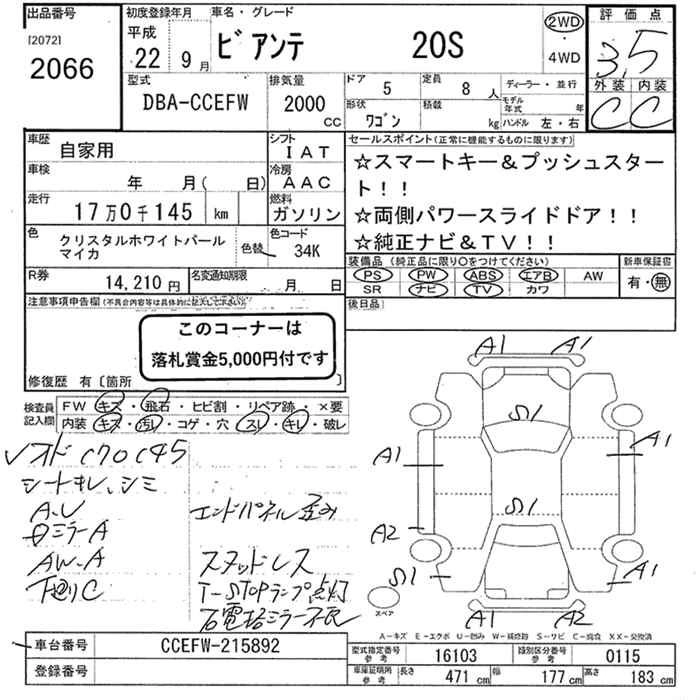 出品番号
[2072]
2066
初度登録年月
平成
22 9月
車名・グレード
ビアンテ 20S
2WD
・
4WD
評価点
3.5
外装 内装
C C
型式
DBA-CCEFW
排気量
2000
CC
ドア 5
形状 ワゴン
定員 8 人
積載 kg
ディーラー・並行
モデル年式 年
ハンドル 左・右
車歴 自家用
シフト IAT
車検 年 月( 日)
冷房 AAC
走行 17万0千145 km
燃料 ガソリン
色 クリスタルホワイトパール
マイカ
色替
色コード 34K
R券 14,210円
名変通知期限 月 日
セールスポイント(正常に機能するものに限ります)
☆スマートキー&プッシュスター
ト!!
☆両側パワースライドドア!!
☆純正ナビ&TV!!
装備品(純正品に限り○をつけてください)
PS PW ABS エアB AW
SR ナビ TV カワ
新車保証書
有・無
後日品
注意事項申告欄(不具合内容等は具体的に記入下さい)
このコーナーは
落札賞金5,000円付です
修復歴 有〔箇所 〕
検査員記入欄
FW キズ・飛石・ヒビ割・リペア跡・×要
内装・キズ・汚レ・コゲ・穴・スレ・キレ・破レ
シートキレ、シミ
A.U
AW.A
下廻りC
エンドパネル歪み
スタッドレス
T-STOPランプ点灯
A1 A1
S1
A1 A1
S1
A2
S1 A1
A1 A2
スペア
A-キズ E-エクボ U-凹み W-補修跡 S-サビ C-腐食 XX-交換済
車台番号 CCEFW-215892
登録番号
型式指定番号 参考 16103
類別区分番号 参考 0115
車庫証明用 参考 長さ 471 cm 幅 177 cm 高さ 183 cm